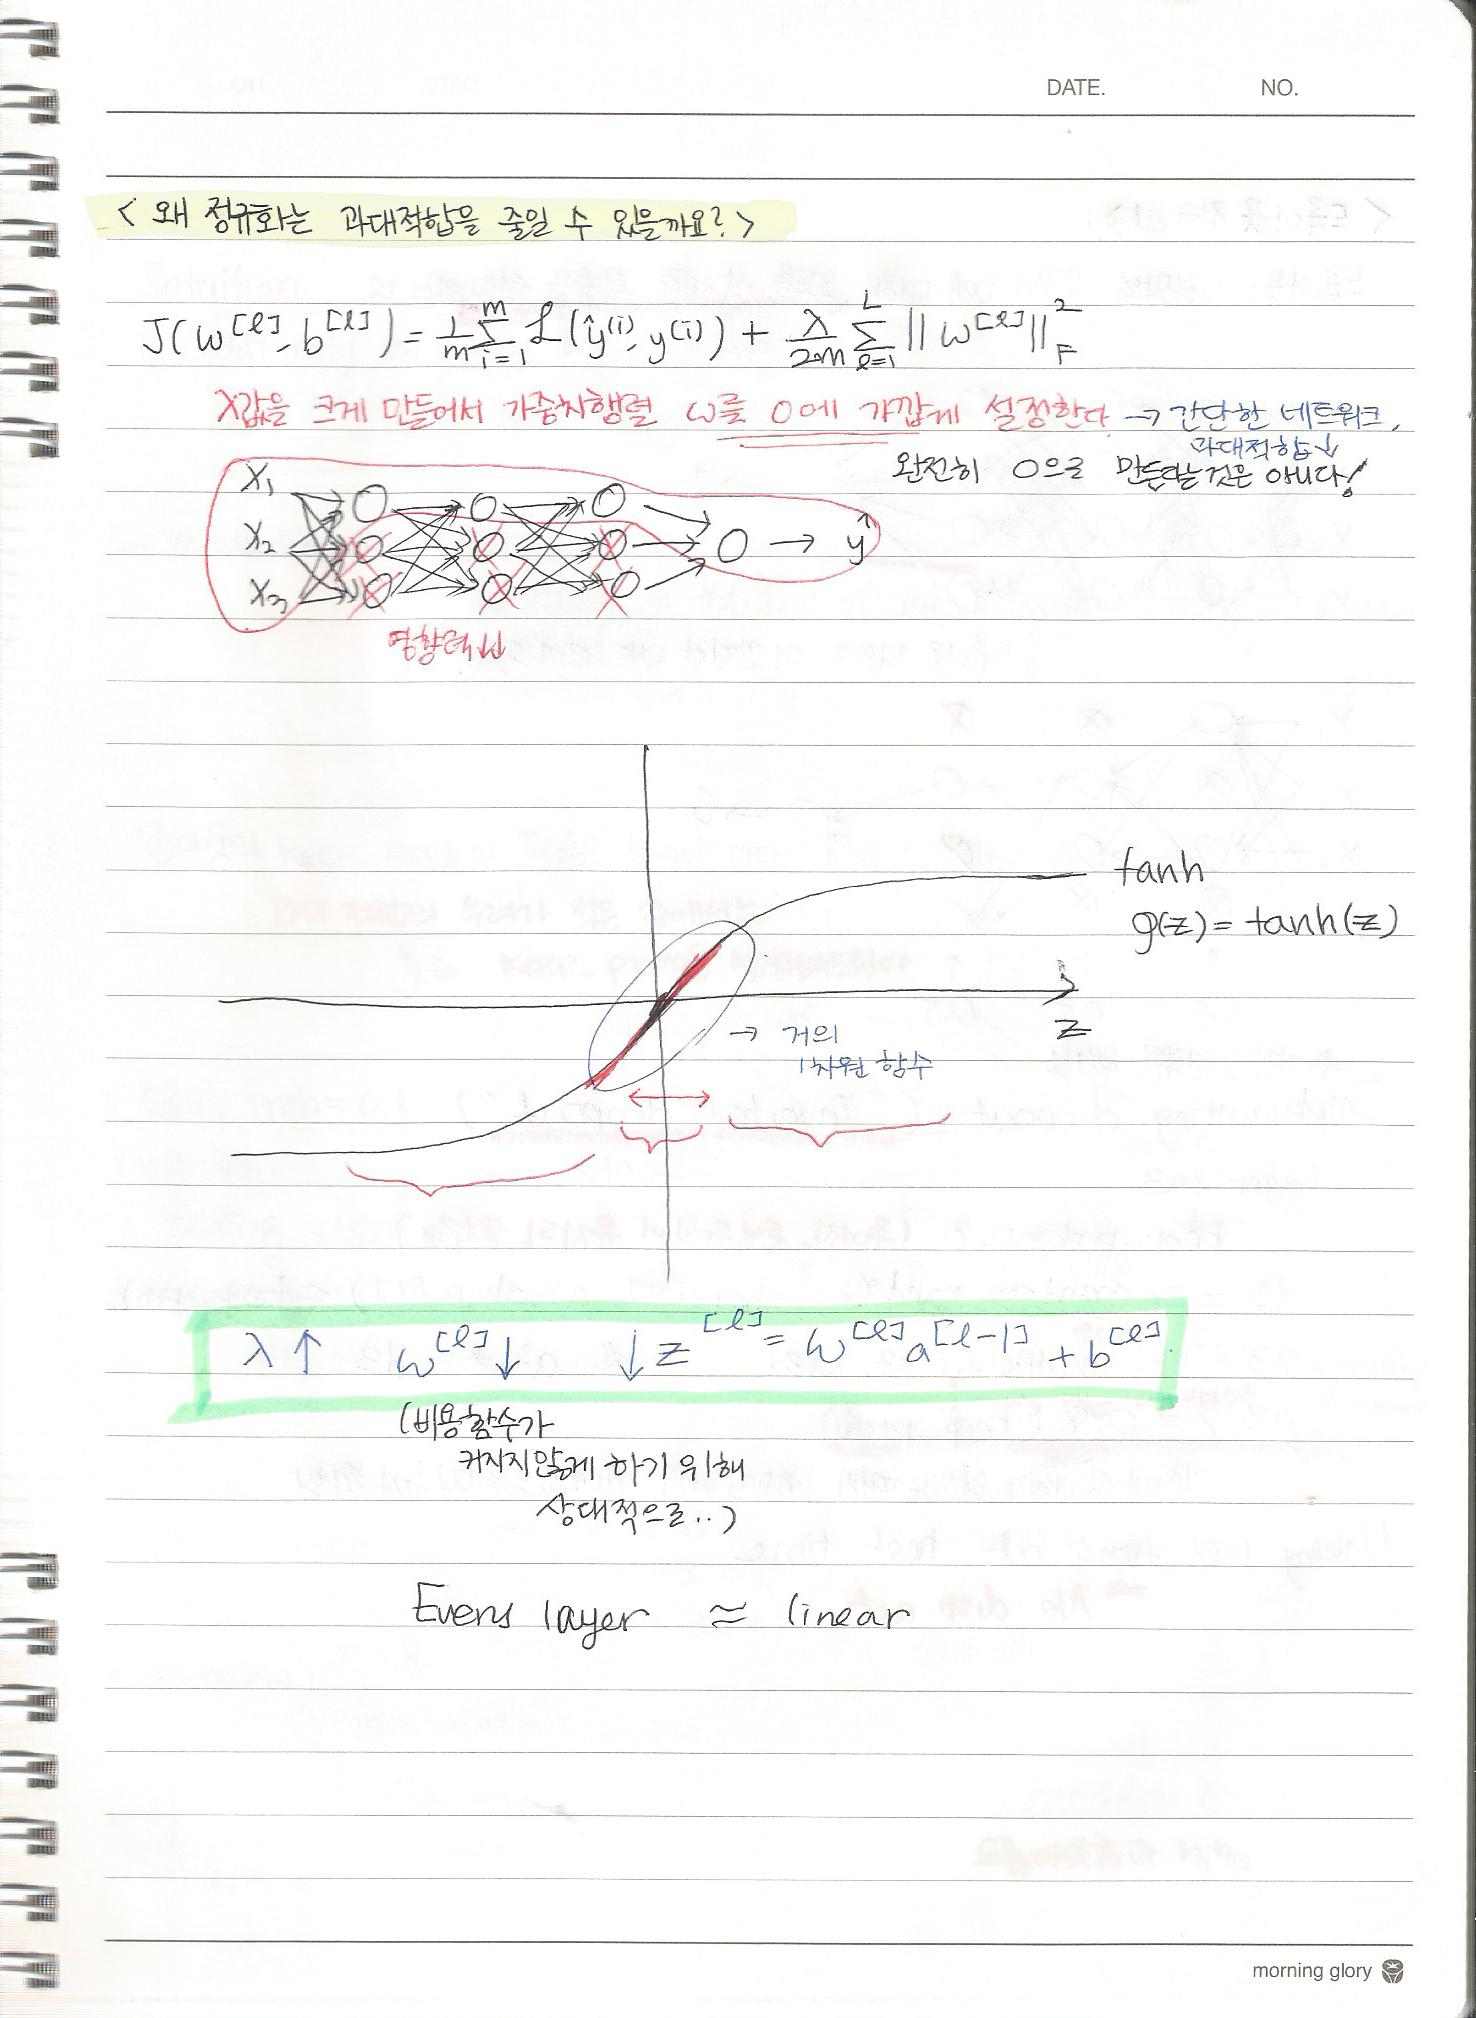 DATE. NO.
< 왜 정규화는 과대적합을 줄일 수 있을까요? >
J(w^[l], b^[l]) = 1/m ∑_{i=1}^{m} ℒ(ŷ^(i), y^(i)) + λ/2m ∑_{l=1}^{L} || w^[l] ||_F^2
λ값을 크게 만들어서 가중치행렬 w를 0에 가깝게 설정한다 → 간단한 네트워크,
과대적합↓
완전히 0으로 만든다는것은 아니다!
x₁
x₂
x₃
→ ŷ
영향력↓↓
tanh
g(z) = tanh(z)
z
→ 거의
1차원 함수
λ↑ w^[l]↓ ↓z^[l] = w^[l] a^[l-1] + b^[l]
(비용함수가
커지지않게 하기 위해
상대적으로..)
Every layer ≈ linear
morning glory